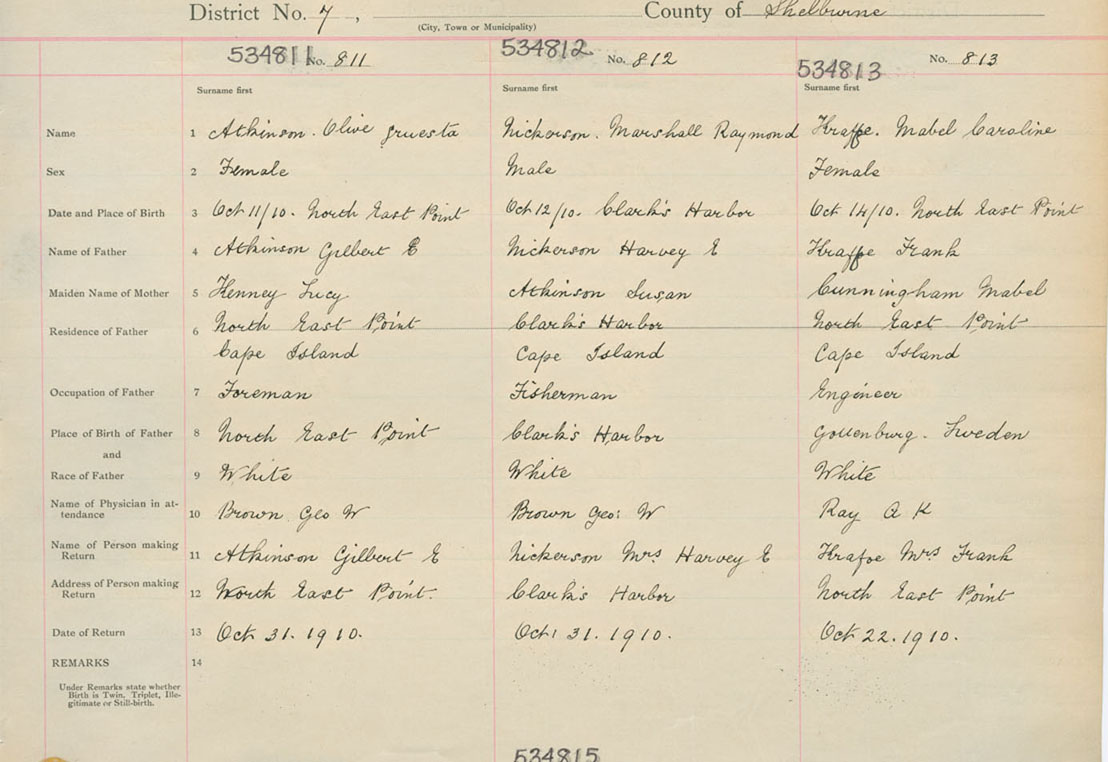 District No. 7, County of Shelburne
(City, Town or Municipality)
534811 No. 811 534812 No. 812 534813 No. 813
Surname first Surname first Surname first
Name 1 Atkinson. Olive Nickerson. Marshall Raymond Mabel Caroline
Sex 2 Female Male Female
Date and Place of Birth 3 Oct 11/10. North East Point Oct 12/10. Clark's Harbor Oct 14/10. North East Point
Name of Father 4 Atkinson Gilbert E Nickerson Harvey E Frank
Maiden Name of Mother 5 Kenney Lucy Atkinson Susan Cunningham Mabel
Residence of Father 6 North East Point Clark's Harbor North East Point
Cape Island Cape Island Cape Island
Occupation of Father 7 Foreman Fisherman Engineer
Place of Birth of Father 8 North East Point Clark's Harbor Gottenburg. Sweden
and
Race of Father 9 White White White
Name of Physician in at-
tendance 10 Brown Geo W Brown Geo: W Ray A K
Name of Person making
Return 11 Atkinson Gilbert E Nickerson Mrs. Harvey E Mrs Frank
Address of Person making
Return 12 North East Point. Clark's Harbor North East Point
Date of Return 13 Oct 31. 1910. Oct: 31. 1910. Oct 22. 1910.
REMARKS 14
Under Remarks state whether
Birth is Twin, Triplet, Ille-
gitimate or Still-birth.
534815